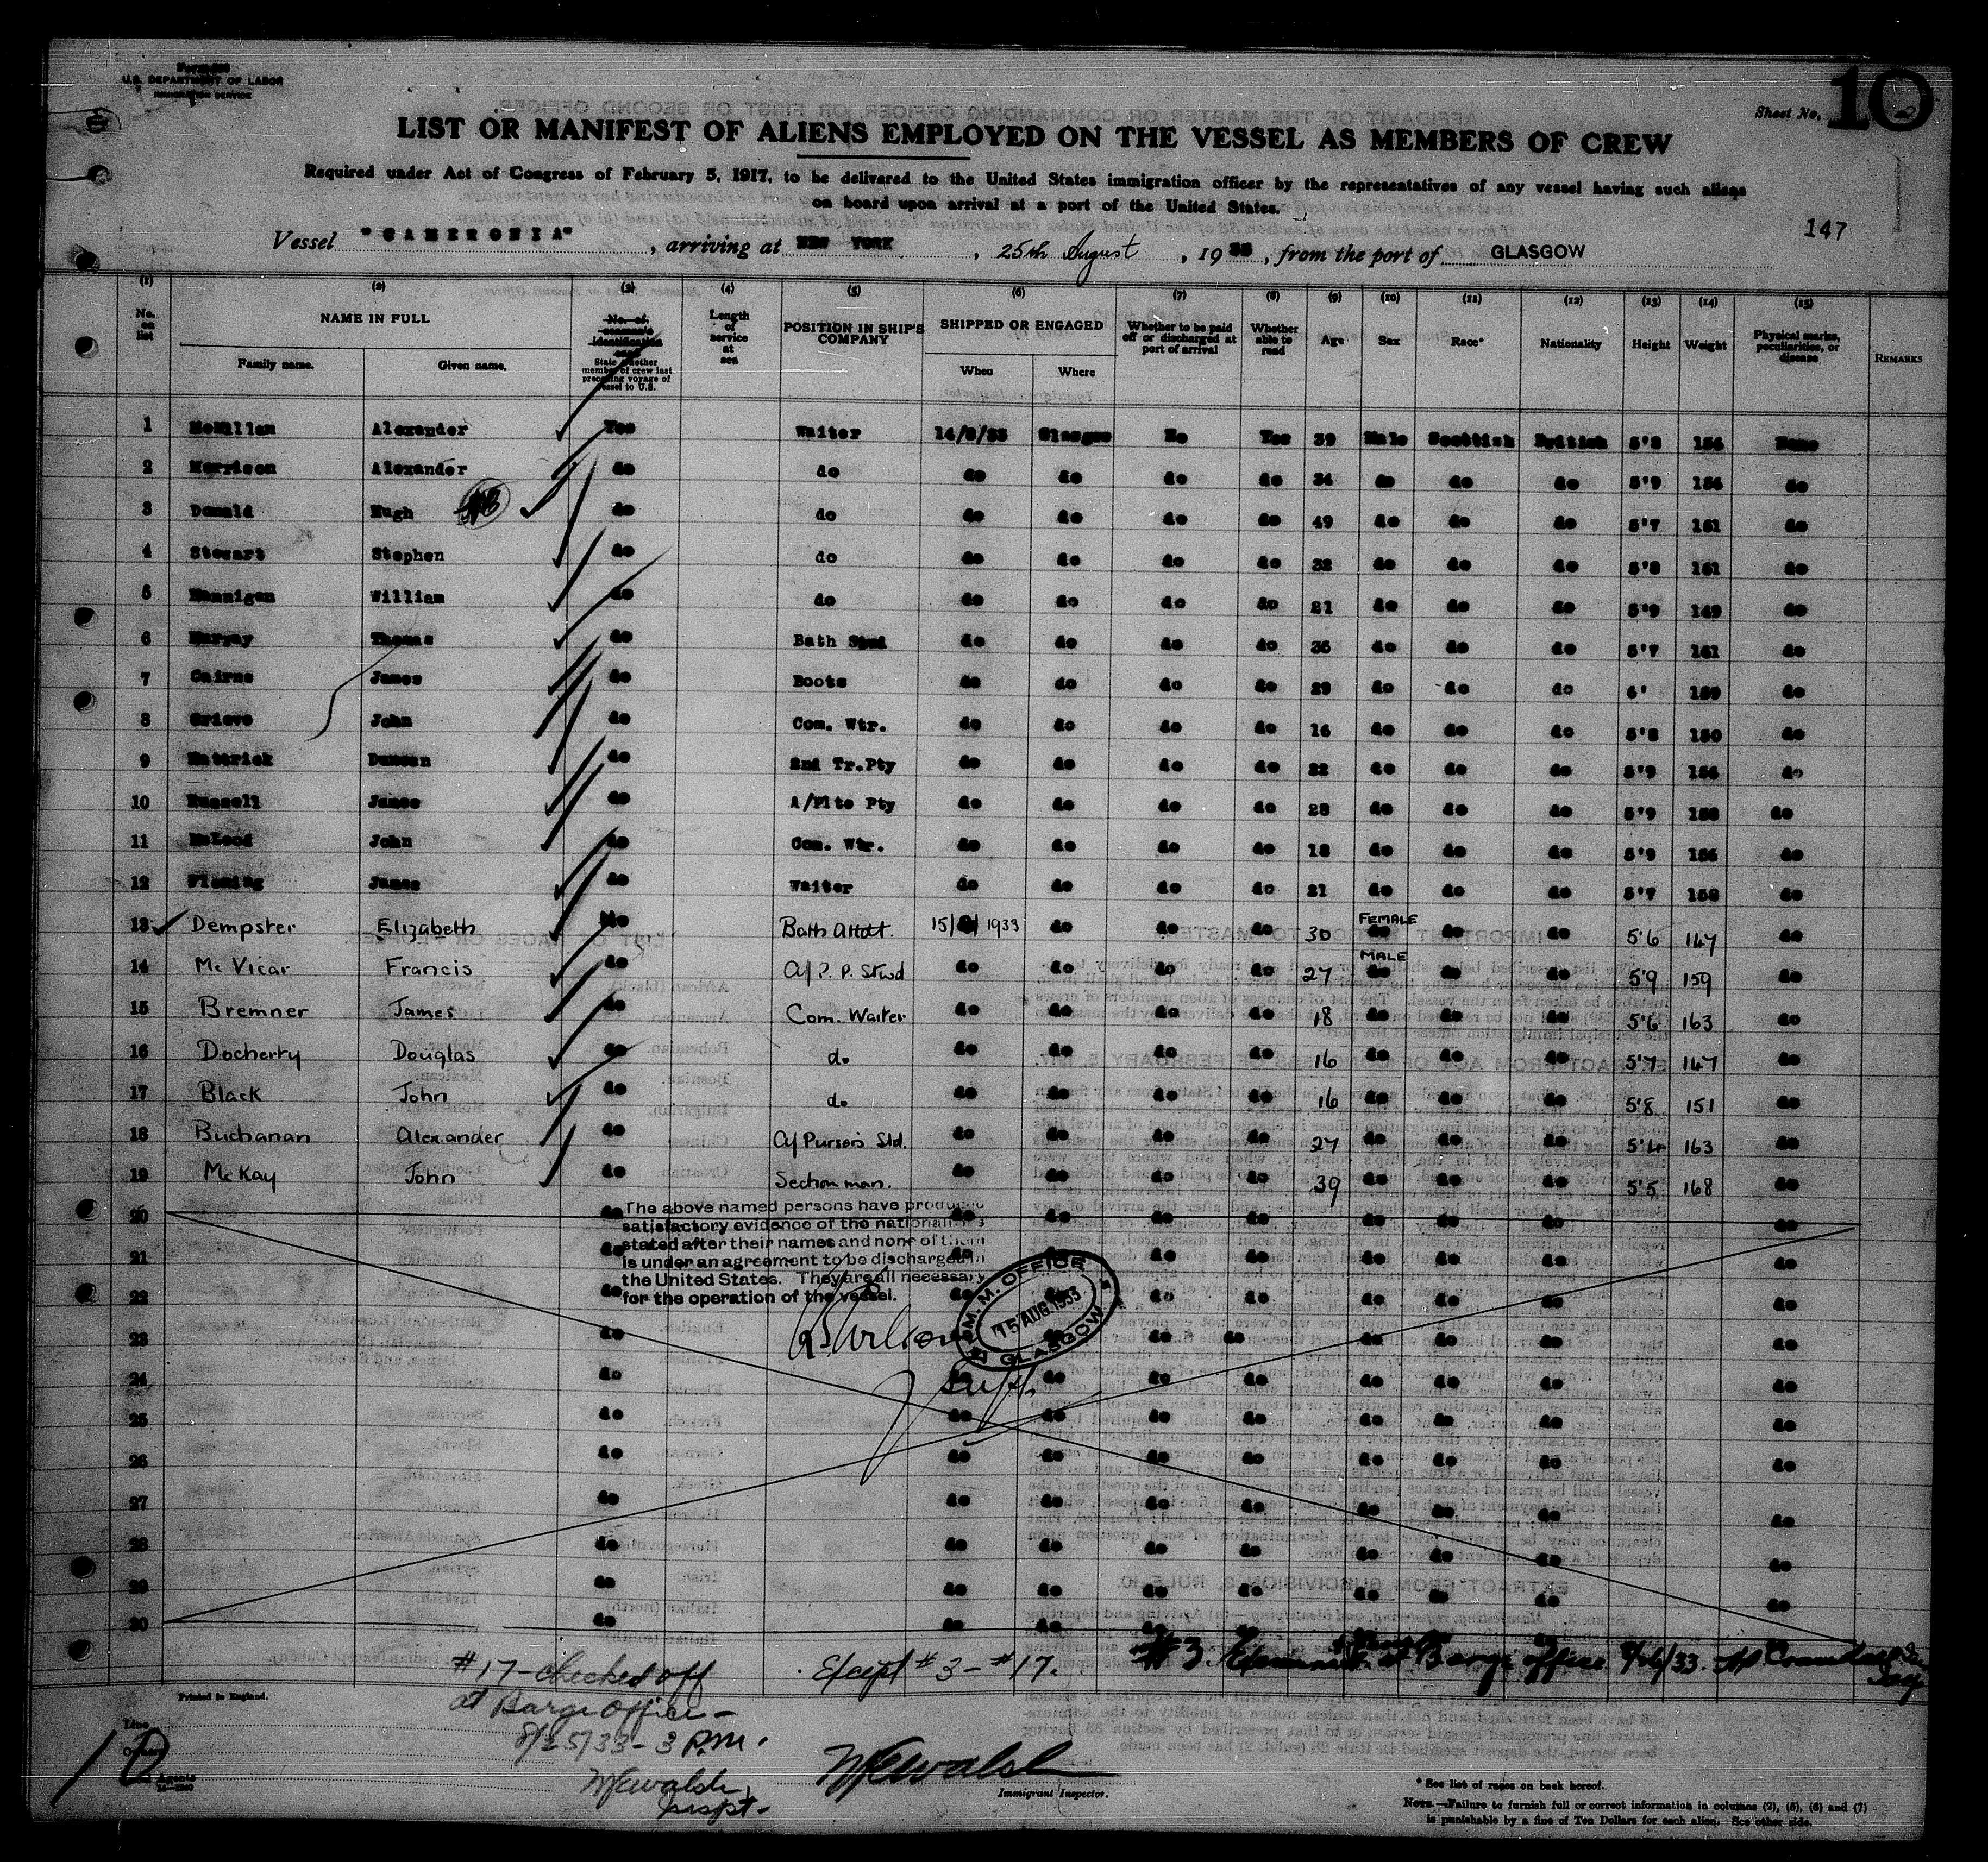 U.S. DEPARTMENT OF LABOR
IMMIGRATION SERVICE
Sheet No. 10
LIST OR MANIFEST OF ALIENS EMPLOYED ON THE VESSEL AS MEMBERS OF CREW
Required under Act of Congress of February 5, 1917, to be delivered to the United States immigration officer by the representatives of any vessel having such aliens
on board upon arrival at a port of the United States.
147
Vessel "CAMERONIA", arriving at NEW YORK, 25th August, 1933, from the port of GLASGOW
(1) (2) (3) (4) (5) (6) (7) (8) (9) (10) (11) (12) (13) (14) (15)
No. on list NAME IN FULL Family name. Given name. No. of seaman's identification card State whether member of crew last preceding voyage of vessel to U.S. Length of service at sea POSITION IN SHIP'S COMPANY SHIPPED OR ENGAGED When Where Whether to be paid off or discharged at port of arrival Whether able to read Age Sex Race* Nationality Height Weight Physical marks, peculiarities, or disease REMARKS
1 McMillan Alexander Yes Waiter 14/8/33 Glasgow No Yes 39 Male Scottish British 5'8 154 None
2 Morrison Alexander do do do do do do 34 do do do 5'9 154 do
3 Donald Hugh do do do do do do 49 do do do 5'7 161 do
4 Stewart Stephen do do do do do do 32 do do do 5'8 161 do
5 Hannigan William do do do do do do 21 do do do 5'9 149 do
6 Murray Thomas do Bath Stwd do do do do 35 do do do 5'7 161 do
7 Cairns James do Boots do do do do 29 do do do 6' 159 do
8 Grieve John do Com. Wtr. do do do do 16 do do do 5'8 150 do
9 Hattrick Duncan do 2nd Tr.Pty do do do do 22 do do do 5'9 154 do
10 Russell James do A/Plte Pty do do do do 28 do do do 5'9 158 do
11 McLeod John do Com. Wtr. do do do do 18 do do do 5'9 156 do
12 Fleming James do Waiter do do do do 21 do do do 5'7 158 do
13 Dempster Elizabeth No Bath Attdt. 15/8/1933 do do do 30 FEMALE do do 5'6 147 do
14 McVicar Francis do A/ P. Stwd do do do do 27 MALE do do do 5'9 159 do
15 Bremner James do Com. Waiter do do do do 18 do do do 5'6 163 do
16 Docherty Douglas do do do do do do 16 do do do 5'7 147 do
17 Black John do do do do do do 16 do do do 5'8 151 do
18 Buchanan Alexander do A/Pursers Std. do do do do 27 do do do 5'4 163 do
19 McKay John do Section man. do do do do 39 do do do 5'5 168 do
20 do do do do do do do do do
The above named persons have produced
satisfactory evidence of the nationalities
stated after their names and none of them
21 do do do do do do do do do
is under an agreement to be discharged in
the United States. They are all necessary
22 do do do do do do do do do
for the operation of the vessel.
IMM. OFFICE
15 AUG 1933
GLASGOW
23 do do do do do do do do
24 do do do do do do do do do
25 do do do do do do do do do
26 do do do do do do do do do
27 do do do do do do do do do
28 do do do do do do do do do
29 do do do do do do do do do
30 do do do do
#17 - checked off
at Barge Office -
8/25/33 - 3 P.M.
Except #3 - #17.
#3 Examined at Barge Office 8/26/33.
Printed in England.
10
W E Walsh
Inspt-
W E Walsh
Immigrant Inspector.
* See list of races on back hereof.
NOTE.—Failure to furnish full or correct information in columns (2), (5), (6) and (7)
is punishable by a fine of Ten Dollars for each alien. See other side.